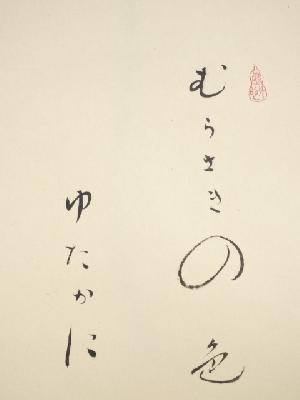 むらさきの色
ゆたかに